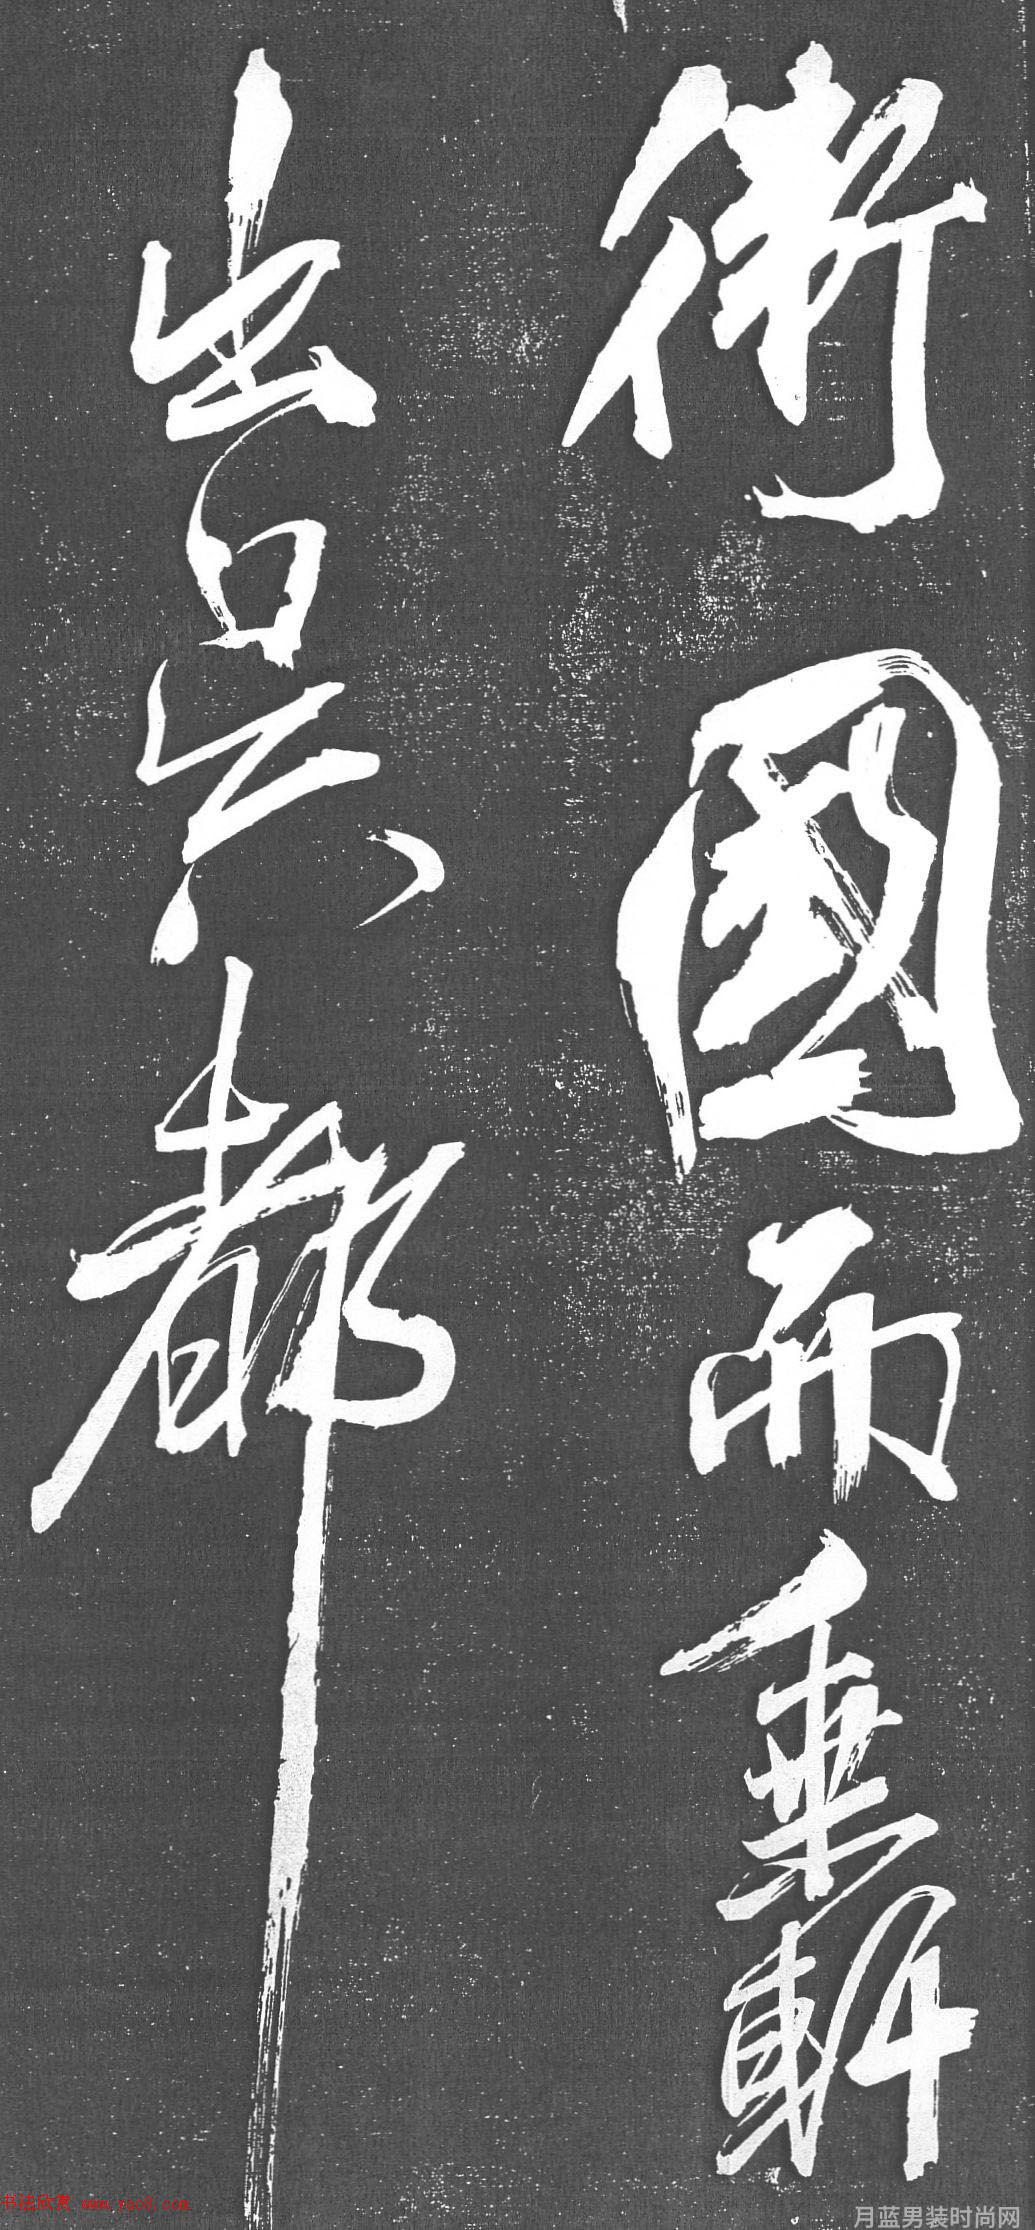 衛國而乘軒
出吳都
书法欣赏 www.yac8.com
月蓝男装时尚网